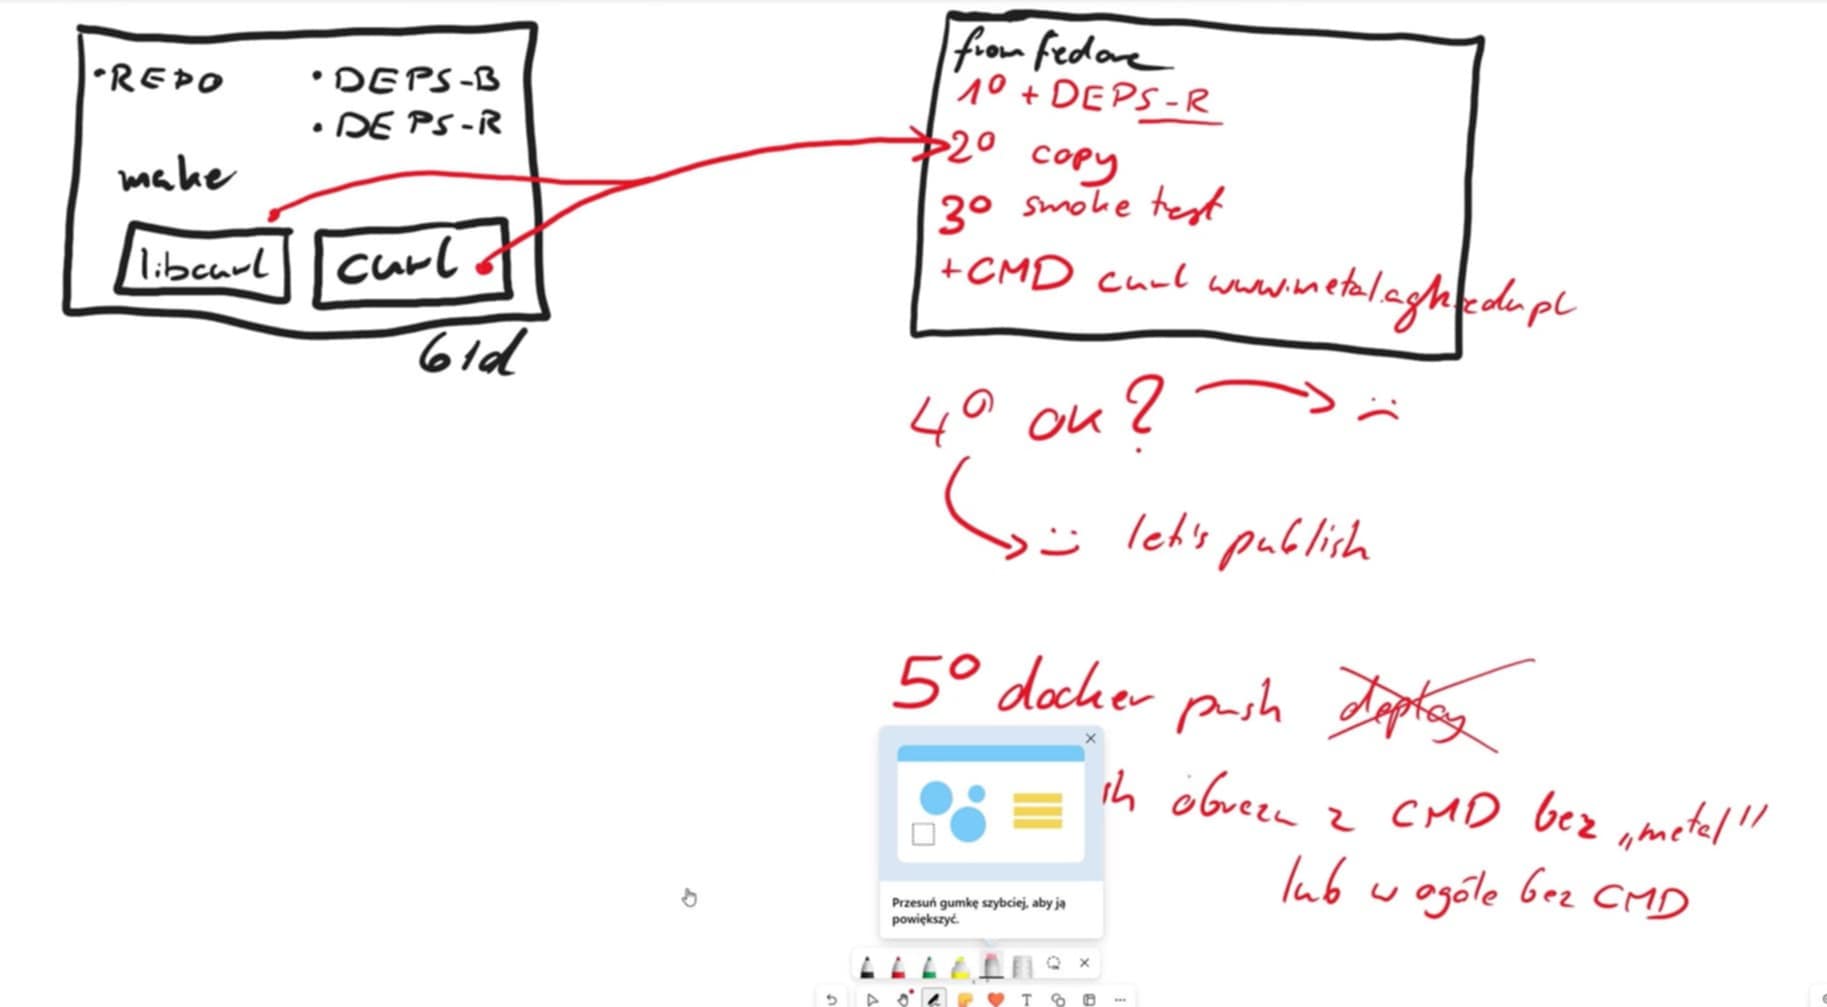 • REPO
• DEPS-B
• DEPS-R
make
libcurl
curl
bld
from fedora
1° + DEPS-R
2° copy
3° smoke test
+CMD curl www.metal.agh.edu.pl
4° ok?
:(
:) let's publish
5° docker push deploy
sh obrazu z CMD bez „metal"
lub w ogóle bez CMD
Przesuń gumkę szybciej, aby ją
powiększyć.
T